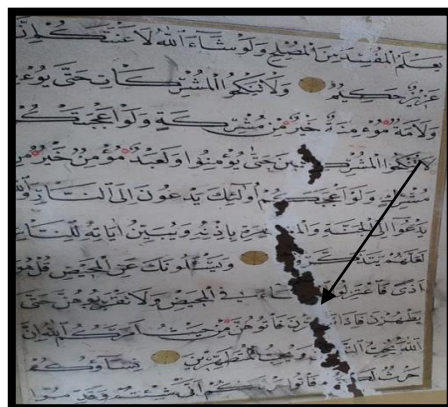 يعلم المفسد من المصلح ولو شاء الله لاعنتكم ان
عزيز حكيم ولا تنكحوا المشركات حتى
ولامة مؤمنة خير من مشركة ولو اعجبتكم
لا تنكحوا حتى يؤمنوا ولعبد مؤمن خير من
مشرك ولو اعجبكم اولئك يدعون الى النار والله
يدعوا الى الجنة باذنه ويبين اياته للناس
لعلهم يتذكرون ويسئلونك عن المحيض قل هو
اذى فاعتزلوا في المحيض ولا تقربوهن حتى
يطهرن فاذا فاتوهن من حيث امركم الله ان
الله يحب ويحب المتطهرين نساؤكم
حرث فاتوا انى شئتم وقدموا